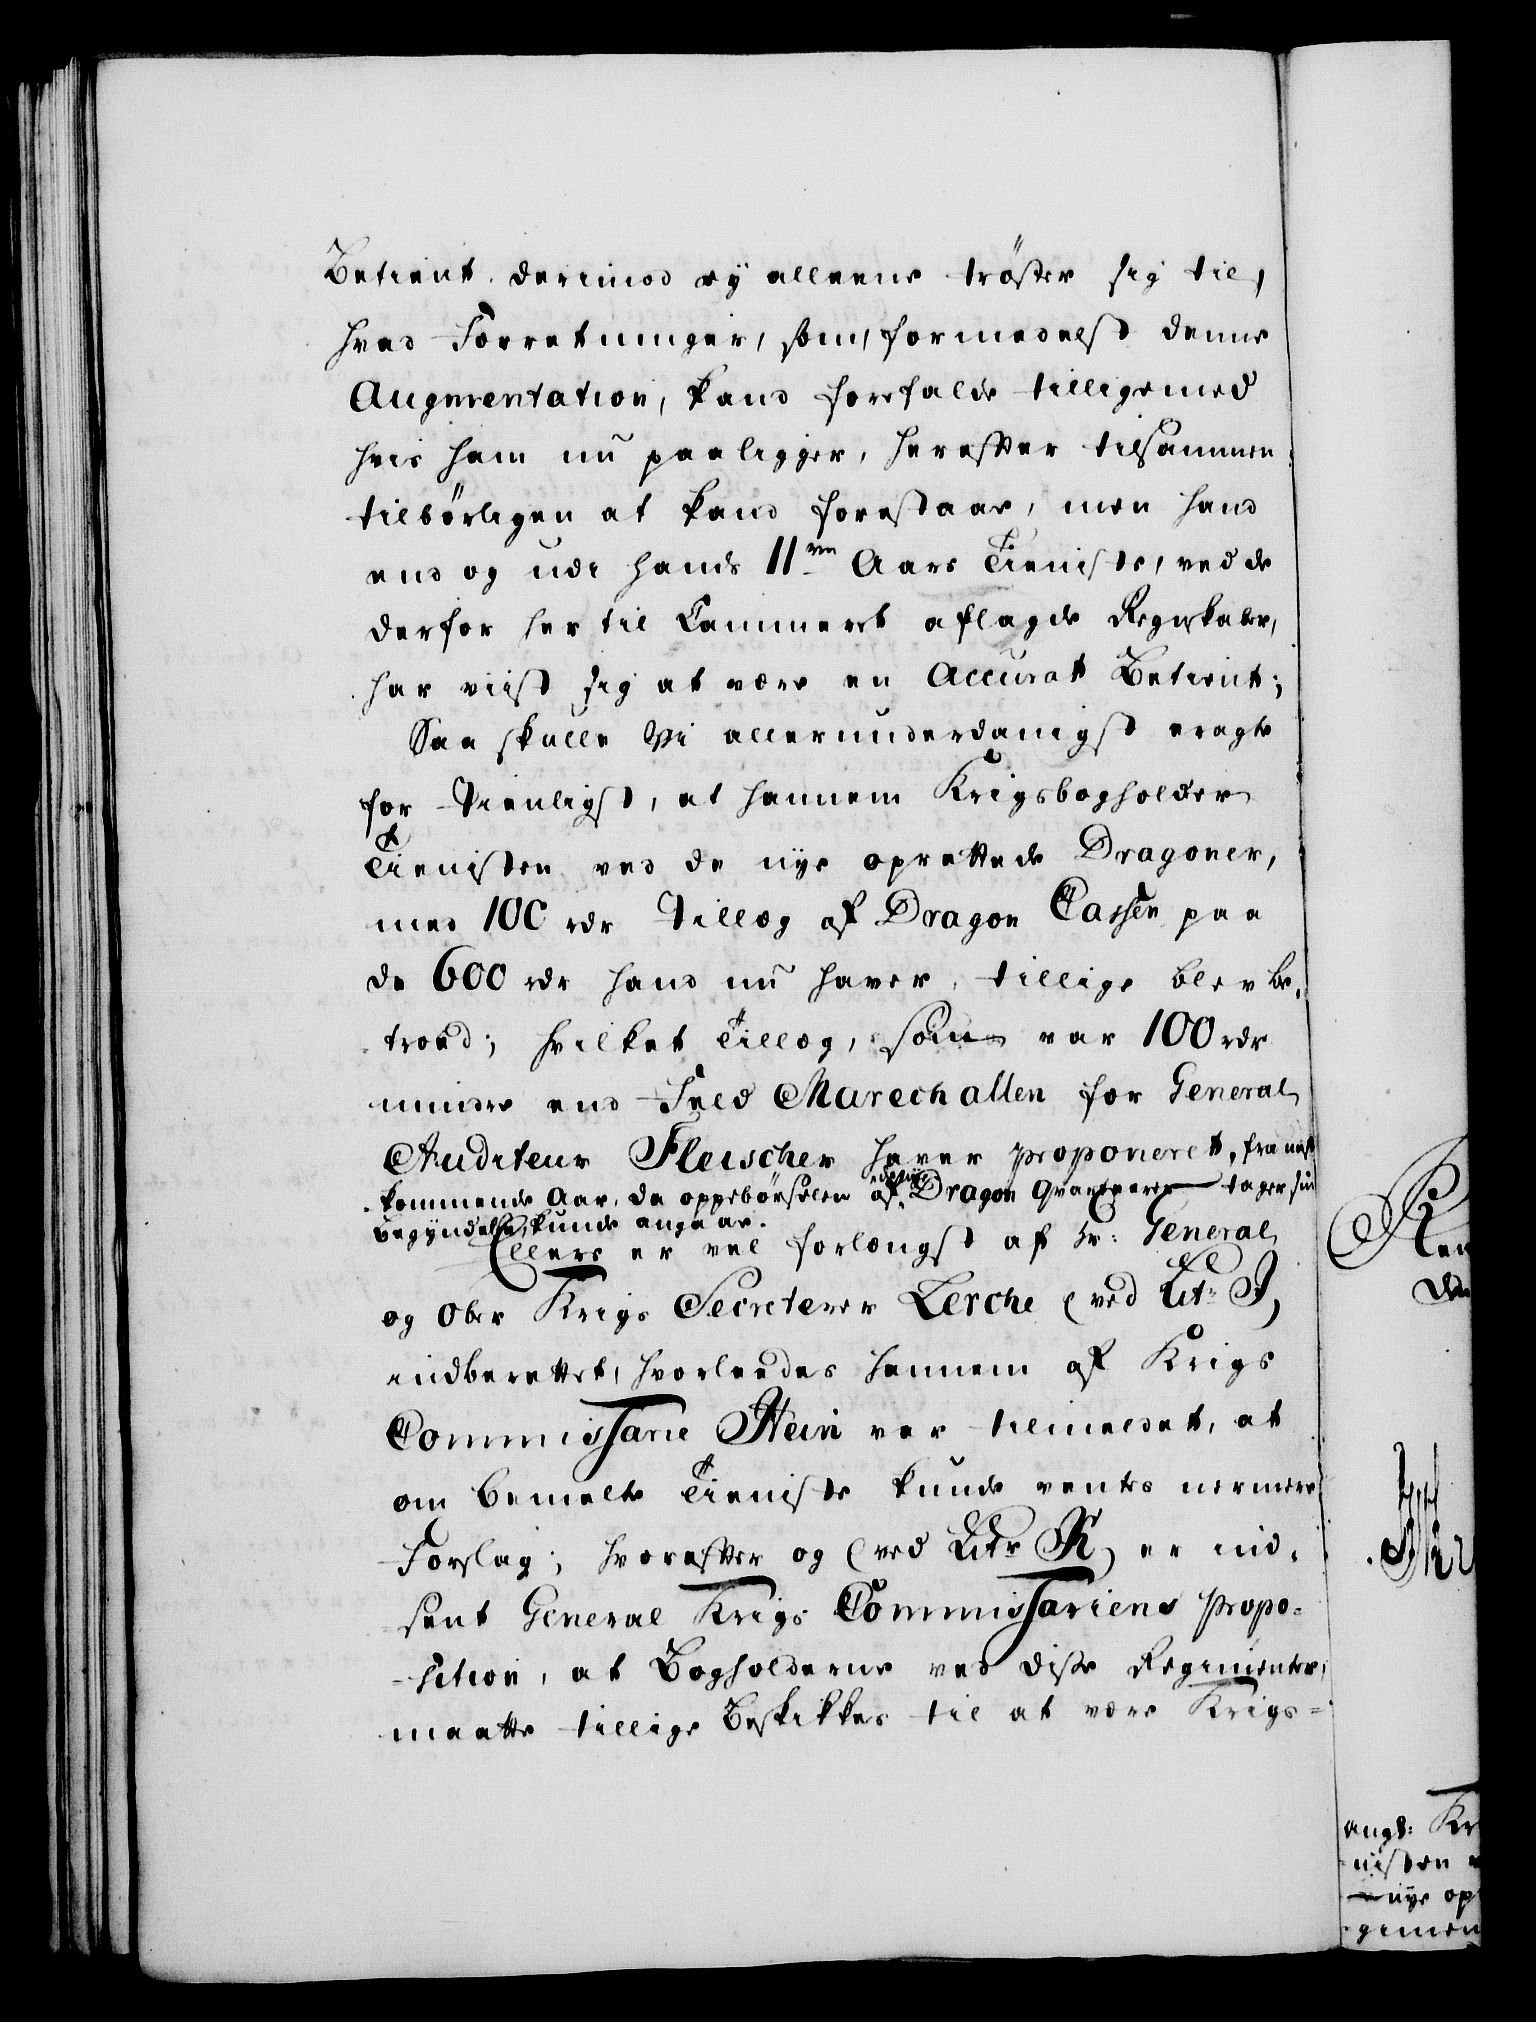 Betient derimod ey alleene trøster sig til,
hvad Forretninger, som, formedelst denne
Augmentation, kand forefalde tilligemed
hvis ham nu paaligger, herefter tilsammen
tilbørligen at kand forestaae, men hand
end og udi hands 11ve Aars Tieniste, ved de
derfor her til Cammeret aflagde Regnskaber,
har viist sig at være en Accurat Betient;
Saa skulle Vi allerunderdanigst eragte
for Tienligst, at hannem Krigsbogholder
Tienisten ved de nye oprettede Dragoner,
med 100 rdr Tillæg af Dragon Cassen paa
de 600 rdr hand nu haver, tillige blev be-
troed; hvilket Tillæg, som var 100 rdr
mindre end Feld Marechallen for General
Auditeur Fleischer haver proponeret, fra nest
kommende Aar, da oppebørselen af Dragon Qvarterer tager sin
begyndelse, kunde angaae.
Ellers er vel forlengst af Hr: General
og Ober Krigs Secreterer Lerche (ved Litr J)
indberettet, hvorledes hannem af Krigs
Commissarie Stein var tilmeldet, at
om bemelte Tieniste kunde ventes nermere
Forslag; hvorefter og (ved Litr K) er ind-
sent General Krigs Commissariens Propo-
sition, at Bogholderne ved disse Regimenter,
maatte tillige Beskikkes til at være Krigs-
angl: Kr
nisten
nye op
gimen